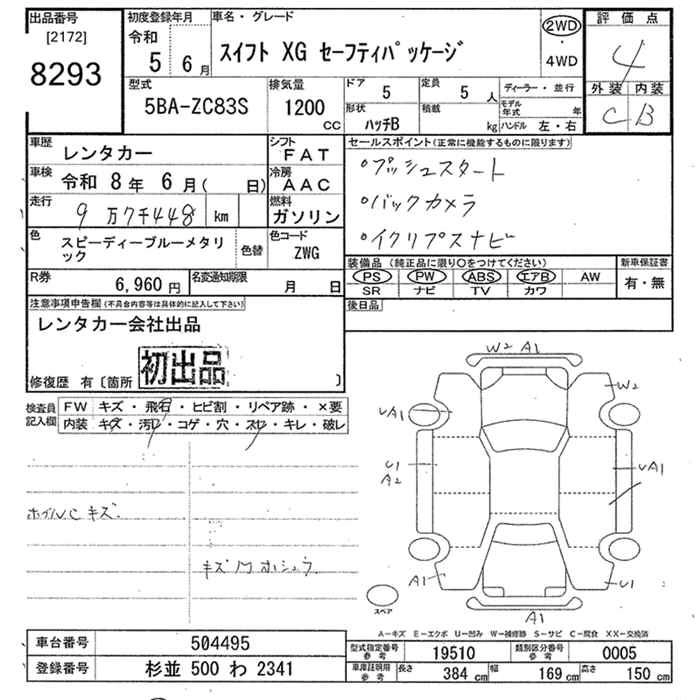 出品番号
[2172]
8293
初度登録年月
令和
5 6月
車名・グレード
スイフト XG セーフティパッケージ
2WD
・
4WD
評価点
4
外装 内装
C B
型式
5BA-ZC83S
排気量
1200
CC
ドア
5
定員
5 人
形状
ハッチB
積載
kg
ディーラー・並行
モデル年式 年
ハンドル 左・右
車歴
レンタカー
シフト
FAT
車検
令和 8年 6月( 日)
冷房
AAC
走行
9万7千448 km
燃料
ガソリン
色
スピーディーブルーメタリック
色替
色コード
ZWG
R券
6,960 円
名変通知期限
月 日
セールスポイント(正常に機能するものに限ります)
○プッシュスタート
○バックカメラ
○イクリプスナビ
装備品(純正品に限り○をつけてください)
PS PW ABS エアB AW
SR ナビ TV カワ
新車保証書
有・無
後日品
注意事項申告欄(不具合内容等は具体的に記入して下さい)
レンタカー会社出品
初出品
修復歴 有〔箇所 〕
検査員記入欄
FW キズ・飛石・ヒビ割・リペア跡・×要
内装 キズ・汚レ・コゲ・穴・スレ・キレ・破レ
ホイルC キズ
キズ 内 ホシュウ
W2 A1
W2
UA1
U1
A2
UA1
A1
U1
A1
スペア
A-キズ E-エクボ U-凹み W-補修跡 S-サビ C-腐食 XX-交換済
車台番号
504495
登録番号
杉並 500 わ 2341
型式指定番号
参考
19510
類別区分番号
参考
0005
車庫証明用
参考
長さ
384 cm
幅
169 cm
高さ
150 cm